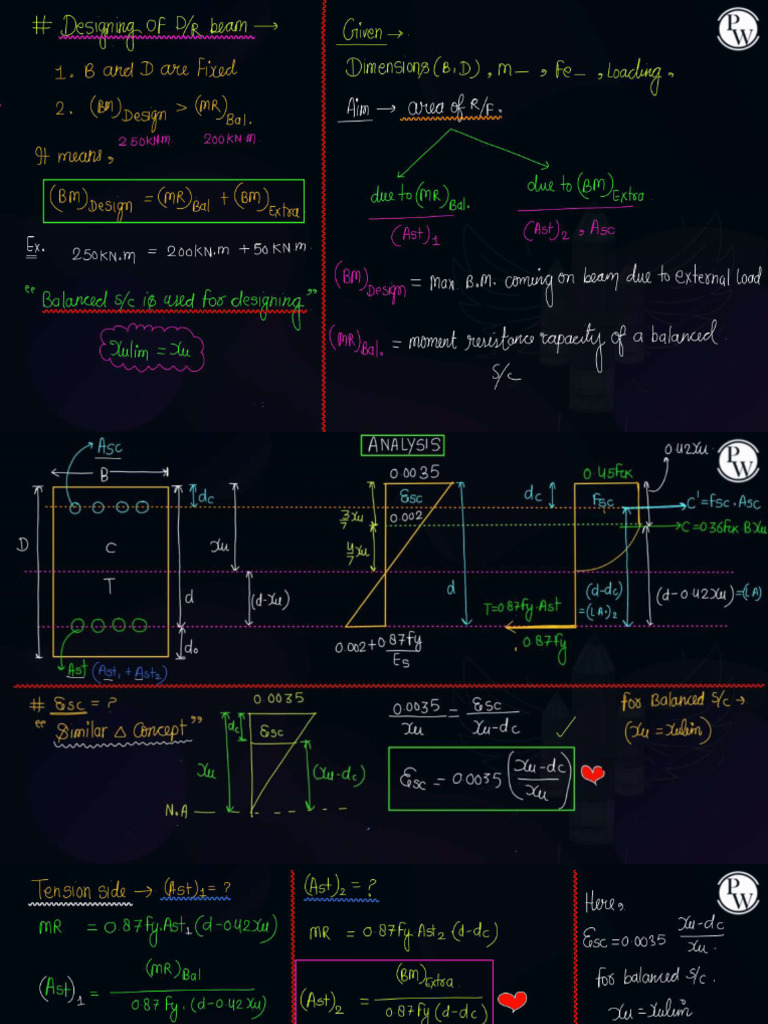 # Designing of D/R beam →
1. B and D are Fixed
2. (BM)Design > (MR)Bal.
250KNm. 200KN.m
It means,
(BM)Design = (MR)Bal + (BM)Extra
Ex. 250KN.m = 200KN.m + 50KNm.
"Balanced s/c is used for designing"
xulim = xu
Given →
PW
Dimensions (B,D), m_, Fe_, Loading,
Aim → area of R/F.
due to (MR)Bal. due to (BM)Extra
(Ast)1 (Ast)2, Asc
(BM)Design = max B.M. coming on beam due to external load
(MR)Bal. = moment resistance capacity of a balanced
S/c
ANALYSIS
PW
Asc
B
dc
D
C
T
xu
d
(d-xu)
do
Ast (Ast1 + Ast2)
0.0035
εsc
3/7 xu
0.002
4/7 xu
d
0.002+0.87fy/Es
0.45fck
0.42xu
dc
Fsc
C'=fsc.Asc
C=0.36fck B xu
T=0.87fy.Ast
(d-dc)
=(LA)2
(d-0.42xu)=(LA)
0.87fy
# εsc = ?
"Similar △ Concept"
0.0035
dc
εsc
xu
(xu-dc)
N.A
0.0035/xu = εsc/xu-dc
εsc = 0.0035 (xu-dc/xu)
for Balanced S/c →
(xu = xulim)
Tension side → (Ast)1 = ?
MR = 0.87fy.Ast1 (d-0.42xu)
(Ast)1 = (MR)Bal / 0.87fy.(d-0.42xu)
(Ast)2 = ?
MR = 0.87fy Ast2 (d-dc)
(Ast)2 = (BM)Extra / 0.87fy(d-dc)
PW
Here,
εsc = 0.0035 xu-dc/xu.
for balanced s/c.
xu = xulim